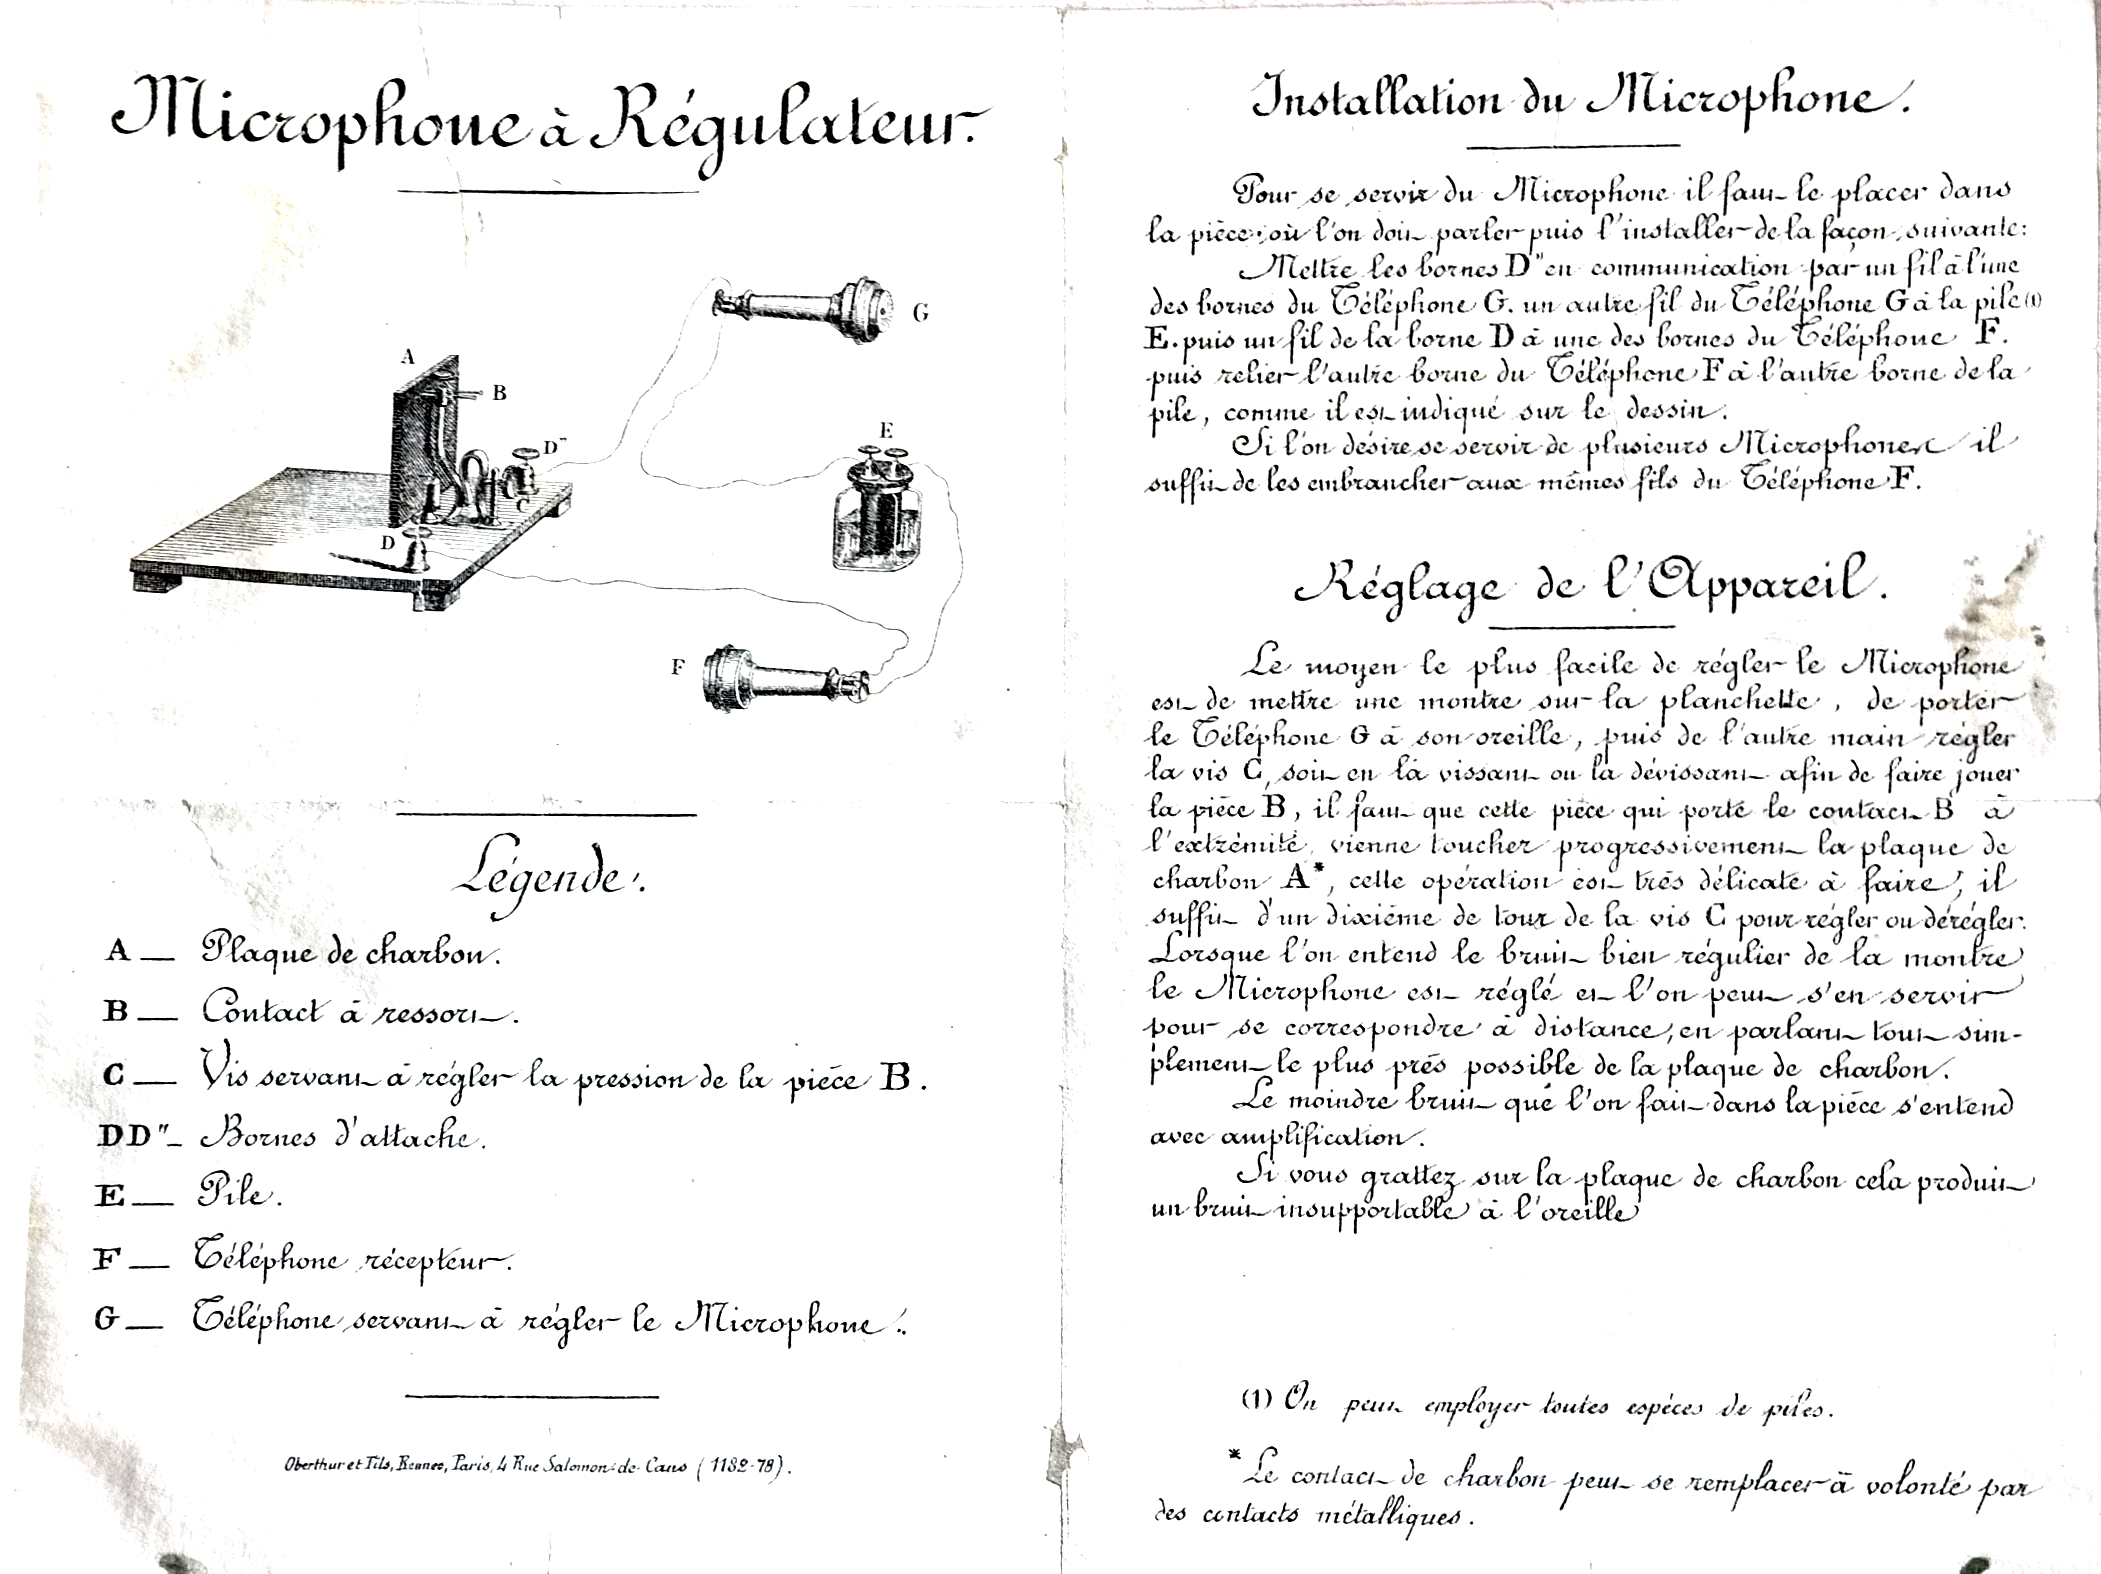 Microphone à Régulateur.
G
A
B
E
D"
C
D
F
Légende.
A — Plaque de charbon.
B — Contact à ressort.
C — Vis servant à régler la pression de la pièce B.
DD" — Bornes d'attache.
E — Pile.
F — Téléphone récepteur.
G — Téléphone servant à régler le Microphone.
Oberthur et Fils, Rennes, Paris, 4 Rue Salomon-de-Caus (1132-78).
Installation du Microphone.
Pour se servir du Microphone il faut le placer dans
la pièce où l'on doit parler puis l'installer de la façon suivante:
Mettre les bornes D" en communication par un fil à l'une
des bornes du Téléphone G. un autre fil du Téléphone G à la pile (1)
E. puis un fil de la borne D à une des bornes du Téléphone F.
puis relier l'autre borne du Téléphone F à l'autre borne de la
pile, comme il est indiqué sur le dessin.
Si l'on désire se servir de plusieurs Microphones il
suffit de les embrancher aux mêmes fils du Téléphone F.
Réglage de l'Appareil.
Le moyen le plus facile de régler le Microphone
est de mettre une montre sur la planchette, de porter
le Téléphone G à son oreille, puis de l'autre main régler
la vis C, soit en la vissant ou la dévissant afin de faire jouer
la pièce B, il faut que cette pièce qui porte le contact B à
l'extrémité, vienne toucher progressivement la plaque de
charbon A*, cette opération est très délicate à faire, il
suffit d'un dixième de tour de la vis C pour régler ou dérégler.
Lorsque l'on entend le bruit bien régulier de la montre
le Microphone est réglé et l'on peut s'en servir
pour se correspondre à distance, en parlant tout sim-
plement le plus près possible de la plaque de charbon.
Le moindre bruit que l'on fait dans la pièce s'entend
avec amplification.
Si vous grattez sur la plaque de charbon cela produit
un bruit insupportable à l'oreille
(1) On peut employer toutes espèces de piles.
* Le contact de charbon peut se remplacer à volonté par
des contacts métalliques.